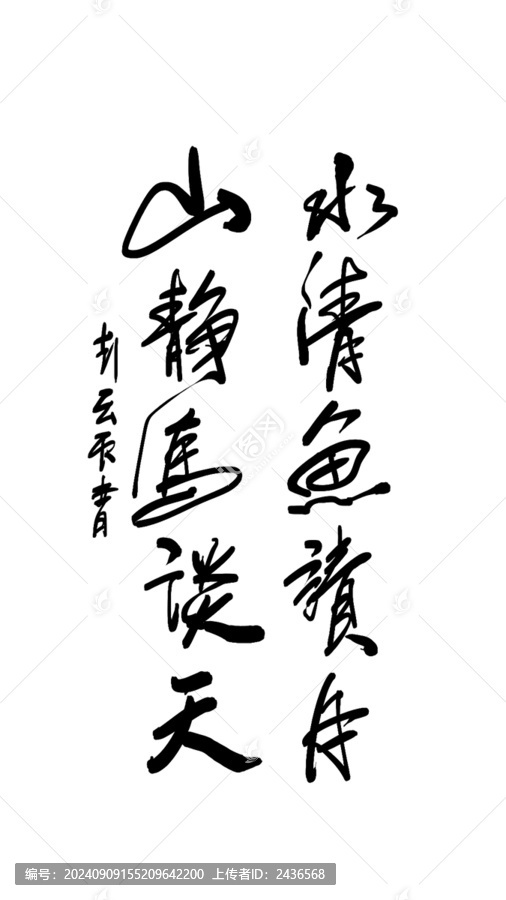 水清鱼讀月
山静鳥谈天
编号：20240909155209642200 上传者ID：2436568